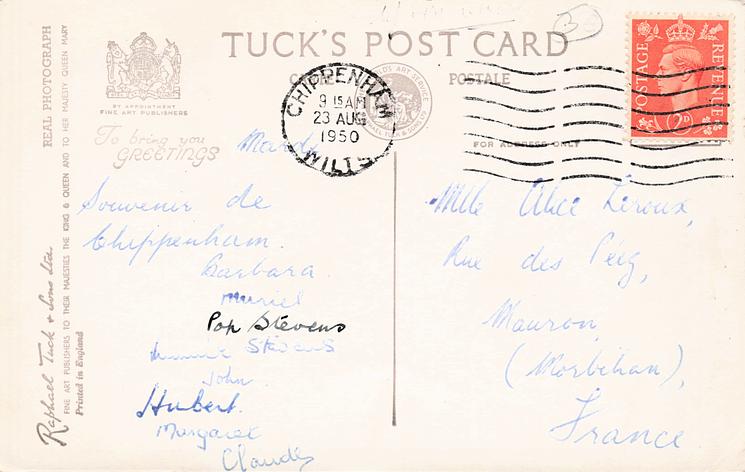 TUCK'S POST CARD
CARTE POSTALE
REAL PHOTOGRAPH
BY APPOINTMENT
FINE ART PUBLISHERS
To bring you
GREETINGS
Raphael Tuck & Sons Ltd.
FINE ART PUBLISHERS TO THEIR MAJESTIES THE KING & QUEEN AND TO HER MAJESTY QUEEN MARY
Printed in England
CHIPPENHAM
9 15 AM
23 AUG
1950
WILTS
FOR ADDRESS ONLY
POSTAGE
REVENUE
2D
Mardi
Souvenir de
Chippenham.
Barbara.
Muriel
Pop Stevens
Stevens
John.
Hubert.
Margaret
Claude
Mlle Alice Leroux,
Rue des
Mauron
(Morbihan),
France